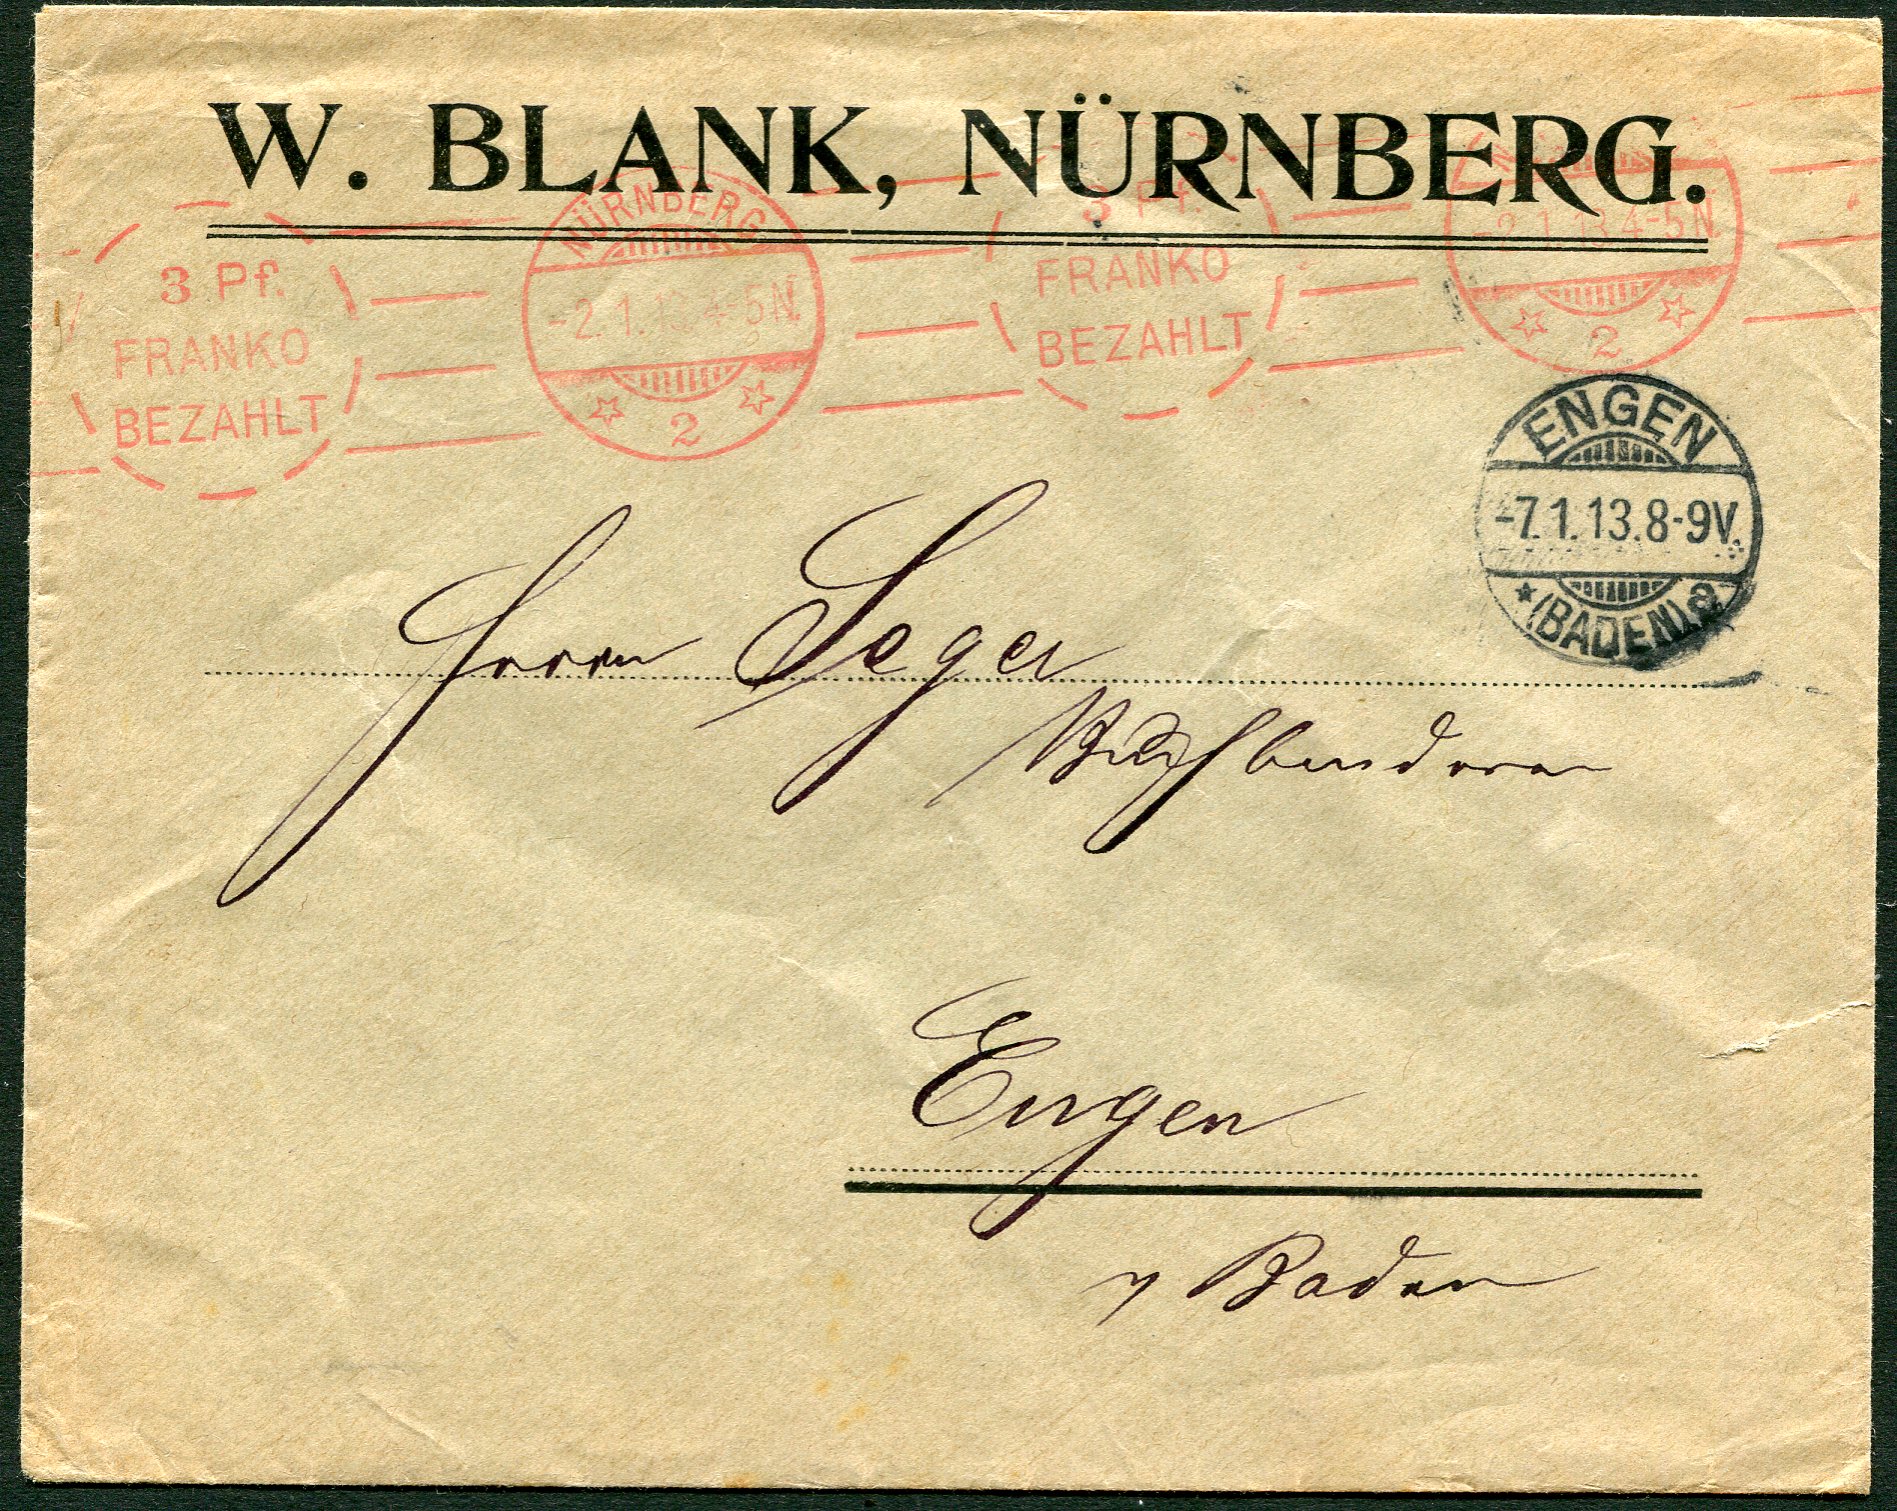 W. BLANK, NÜRNBERG.
3 Pf.
FRANKO
BEZAHLT
NÜRNBERG
-2.1.13.4-5N.
2
3 Pf.
FRANKO
BEZAHLT
-2.1.13.4-5N.
2
ENGEN
-7.1.13.8-9V.
* (BADEN) a
Herrn Seger
Buchbinderei
Engen
Baden